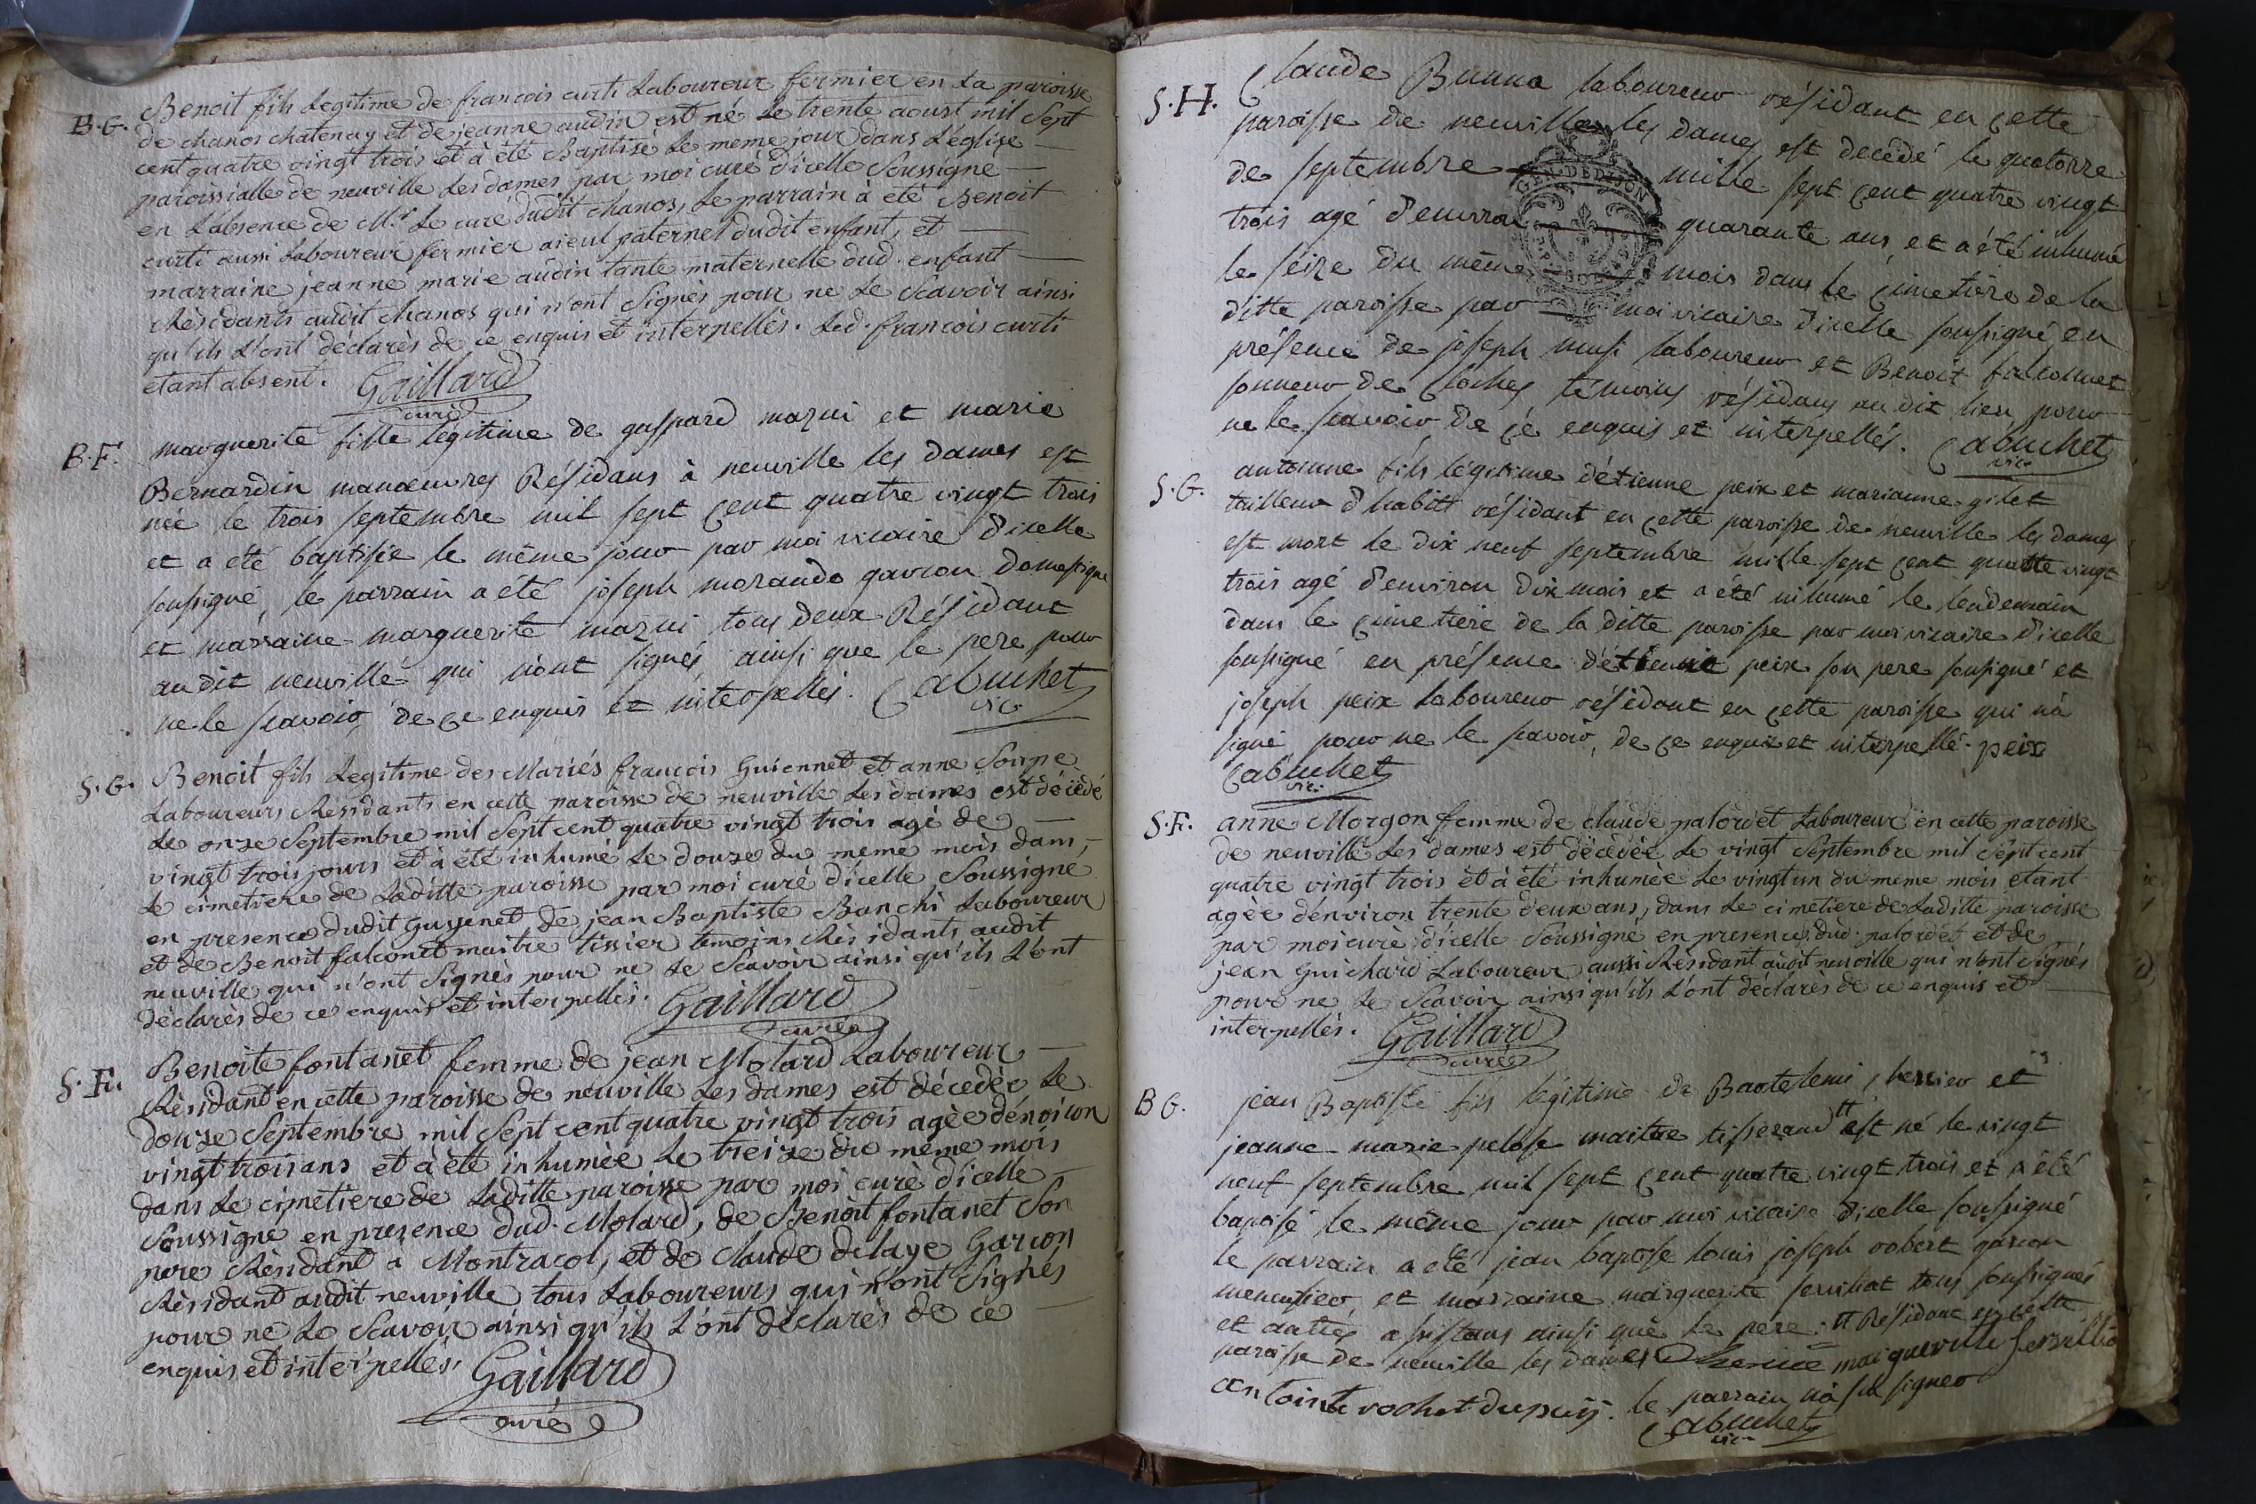 B.G. Benoit fils Legitime de francois curti Laboureur fermier en La paroisse
de chanos chatenay et de jeanne audin est né Le trente aoust mil Sept
cent quatre vingt trois et à été Baptisé Le meme jour dans L'eglise
paroissialle de neuville Les dames par moi curé d'icelle Soussigné
en L'absence de Mr. Le curé dudit chanos, Le parrain à été Benoit
curti aussi Laboureur fermier aieul paternel dudit enfant, et
marraine jeanne marie audin tante maternelle dud. enfant
Résidants audit chanos qui n'ont Signés pour ne Le Scavoir ainsi
qu'ils L'ont déclarés de ce enquis et interpellés. Led. francois curti
etant absent. Gaillard
curé
B.F. marguerite fille légitime de gaspard mazui et marie
Bernardin manoeuvres Résidans à neuville les dames est
née le trois septembre mil sept cent quatre vingt trois
et a été baptisée le même jour par moi vicaire d'icelle
soussigné, le parrain a été joseph morando garcon domestique
et marraine marguerite mazui tous deux Résidant
audit neuville qui n'ont signés ainsi que le pere pour
ne le scavoir, de ce enquis et interpellés. Cabuchet
vic.
S.G. Benoit fils Legitime des Mariés francois Guiennet et anne
Laboureurs Résidants en cette paroisse de neuville Les dames est décédé
Le onze Septembre mil Sept cent quatre vingt trois agé de
vingt trois jours et à été inhumé Le douze du meme mois dans
Le cimetiere de Laditte paroisse par moi curé d'icelle Soussigné
en presence dudit Guyenet de jean Baptiste Banchi Laboureur
et de Benoit falconet maitre tissier temoins Résidants audit
neuville qui n'ont Signés pour ne Le Scavoir ainsi qu'ils L'ont
déclarés de ce enquis et interpellés. Gaillard
curé
S.F. Benoite fontanet femme de jean Molard Laboureur
Résidant en cette paroisse de neuville Les dames est décedée Le
douze Septembre mil Sept cent quatre vingt trois agée d'environ
vingt trois ans et à été inhumée Le treize du même mois
dans Le cimetiere de Laditte paroisse par moi curé d'icelle
Soussigné en presence dud. Molard, de Benoit fontanet Son
pere Résidant a Montracol, et de claude delaye Garcon
Résidant audit neuville tous Laboureurs qui n'ont Signés
pour ne Le Scavoir ainsi qu'ils L'ont déclarés de ce
enquis et interpellés. Gaillard
curé
S.H. Claude laboureur résidant en cette
paroisse de neuville les dames est decédé le quatorze
de septembre mille sept cent quatre vingt
trois agé d'environ quarante ans, et a été inhumé
le seize du même mois dans le cimetière de la
ditte paroisse par moi vicaire d'icelle soussigné en
présence de joseph laboureur et Benoit falconnet
sonneur de cloches temoins résidans audit lieu pour
ne le scavoir, de ce enquis et interpellés. Cabuchet
vic.
S.G. antoinne fils légitime d'étienne peix et marianne gilet
tailleur d'habitt résidant en cette paroisse de neuville les dames
est mort le dix neuf septembre mille sept cent quatre vingt
trois agé d'environ dix mois et a été inhumé le lendemain
dans le cimetière de la ditte paroisse par moi vicaire d'icelle
soussigné en présence d'étienne peix son pere sousigné et
joseph peix laboureur résidant en cette paroisse qui n'à
signé pour ne le savoir, de ce enquis et interpellé. peix
Cabuchet
vic.
S.F. anne Morgon femme de claude palordet Laboureur en cette paroisse
de neuville Les dames est décedée Le vingt Septembre mil Sept cent
quatre vingt trois et à été inhumée Le vingt un du meme mois etant
agée d'environ trente deux ans, dans Le cimetiere de Laditte paroisse
par moi curé d'icelle Soussigné en presence dud. palordet et de
jean Guichard Laboureur aussi Résidant audit neuville qui n'ont Signés
pour ne Le Scavoir ainsi qu'ils L'ont déclarés de ce enquis et
interpellés. Gaillard
curé
B G. jean Baptiste fils légitime de Bartelemi et
jeanne marie pelosse maitre tisserand tt est né le vingt
neuf septembre mil sept cent quatre vingt trois et a été
baptisé le même jour par moi vicaire d'icelle soussigné
le parrain a été jean baptiste louis joseph robert garcon
menuisier, et marraine marguerite tous soussignés
et autres assistans ainsi que le pere. tt Résidant en cette
paroisse de neuville les dames marguerite
antoine rochet dupuy. le parrain n'à su signer
Cabuchet
vic.